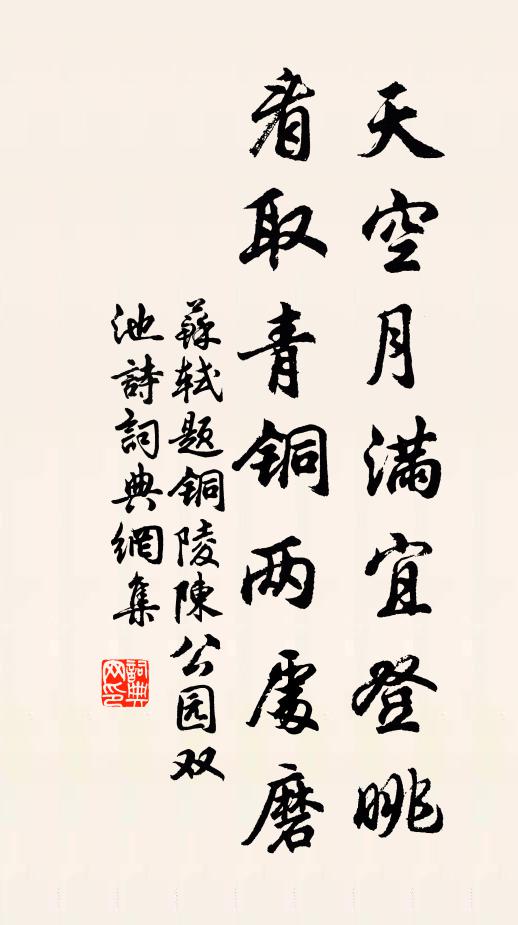 天空月满宜登眺
看取青铜两處磨
蘇轼题铜陵陳公园双
池詩詞典網集
詞典网印